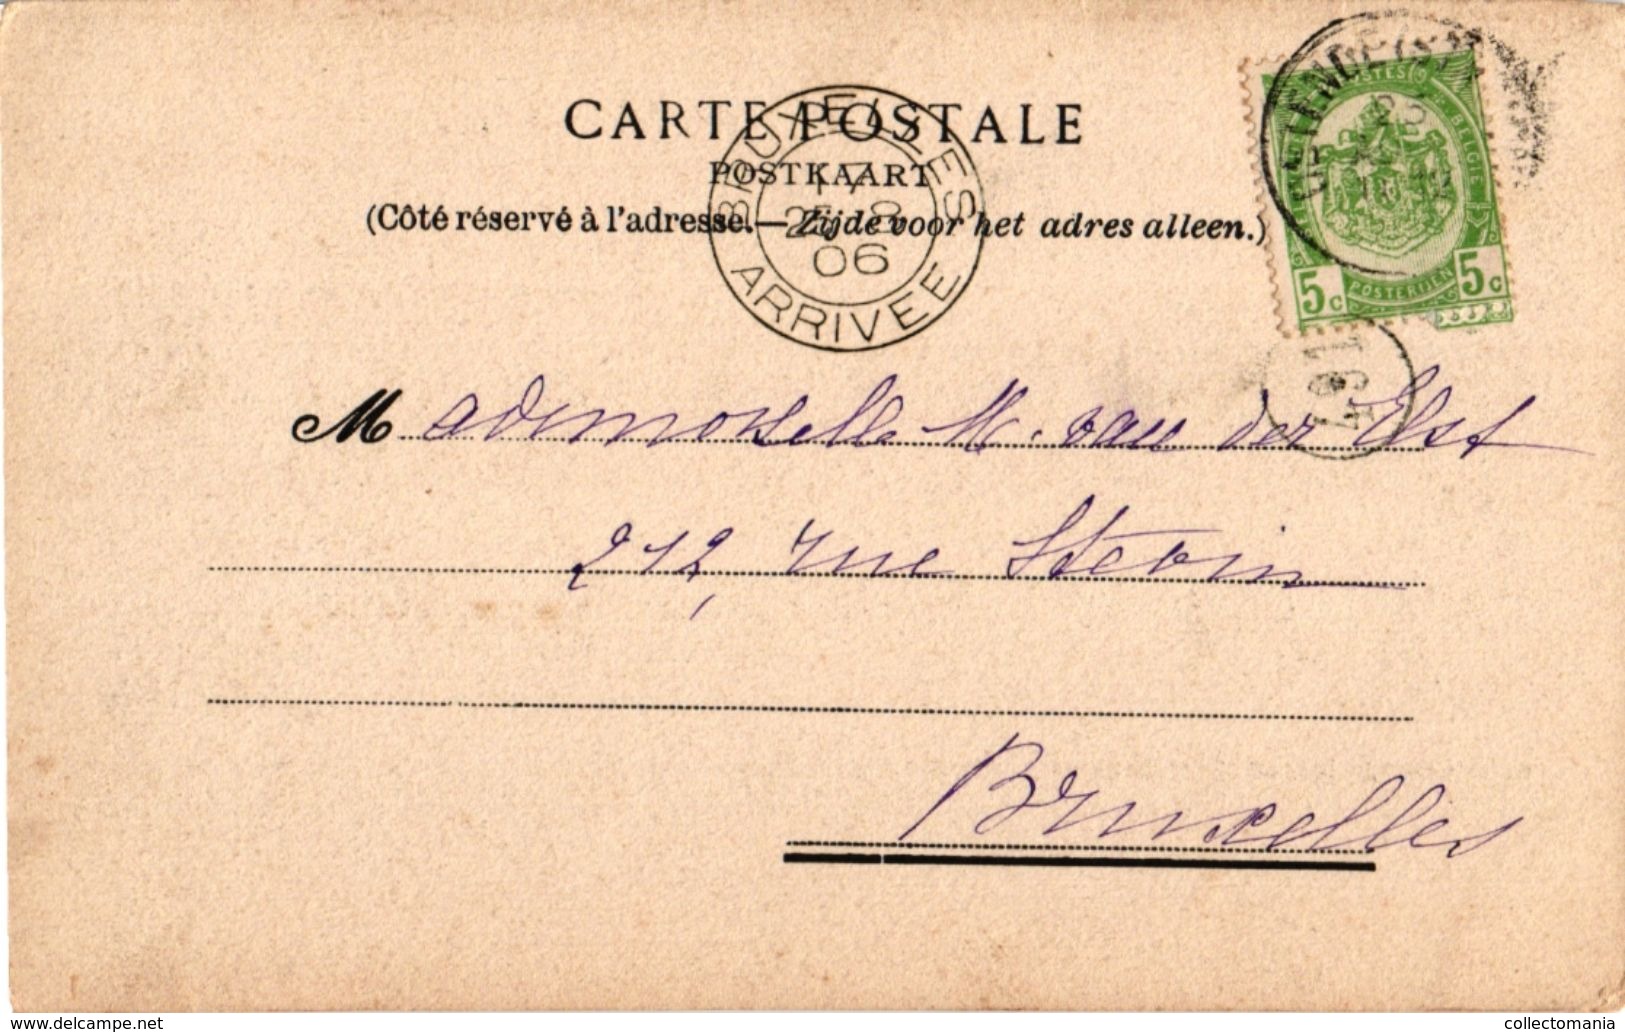 CARTE POSTALE
POSTKAART
(Côté réservé à l'adresse.— Zijde voor het adres alleen.)
BRUXELLES
17
25 8
06
ARRIVEE
POSTES
BELGIE
5c POSTERIJEN 5c
Mademoiselle M. van der Elst
212, rue Stévin
Bruxelles
www.delcampe.net
collectomania